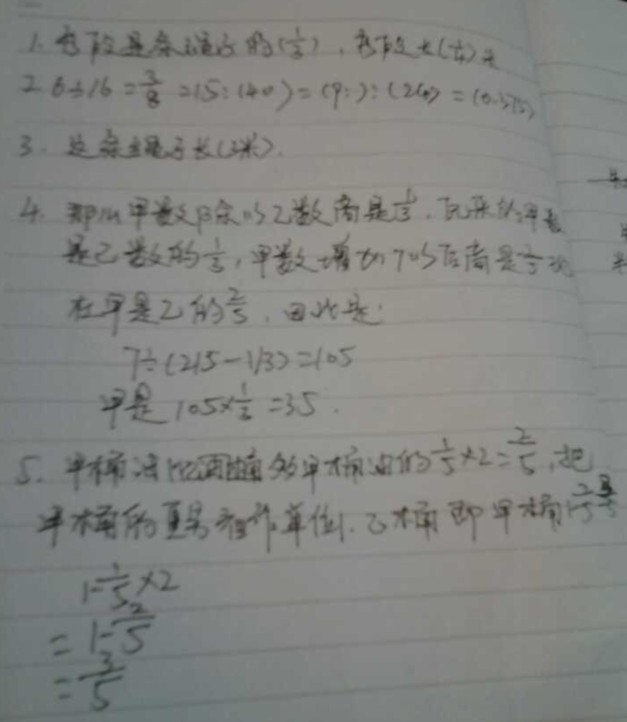 1. 每段是条绳子的(1/3), 每段长(1/4)米
2 6÷16=3/8=15:(40)=(9:):(24)=(0.375)
3. 这条绳子长(3米).
4. 那么甲数除以乙数商是1/3, 原来的甲数
是乙数的1/3, 甲数增加7以后商是 现
在甲是乙的2/5, 因此是:
7÷(2/5-1/3)=105
甲是105×1/3=35.
5. 甲桶油比 甲桶油的1/5×2=2/5, 把
甲桶的 单位1. 乙桶即甲桶
1-1/5×2
=1-2/5
=3/5